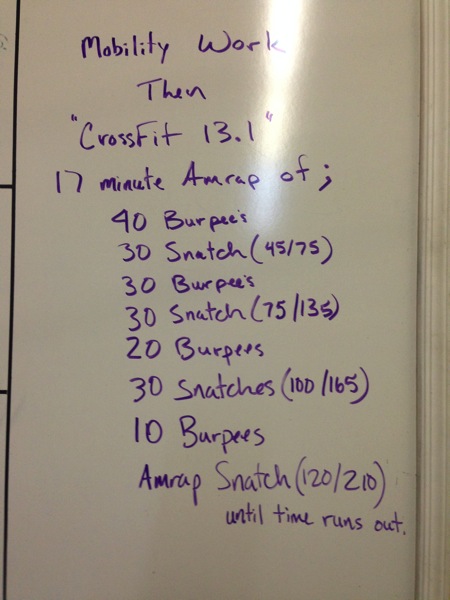 Mobility Work
Then
"CrossFit 13.1"
17 minute Amrap of;
40 Burpee's
30 Snatch (45/75)
30 Burpee's
30 Snatch (75/135)
20 Burpees
30 Snatches (100/165)
10 Burpees
Amrap Snatch (120/210)
until time runs out.